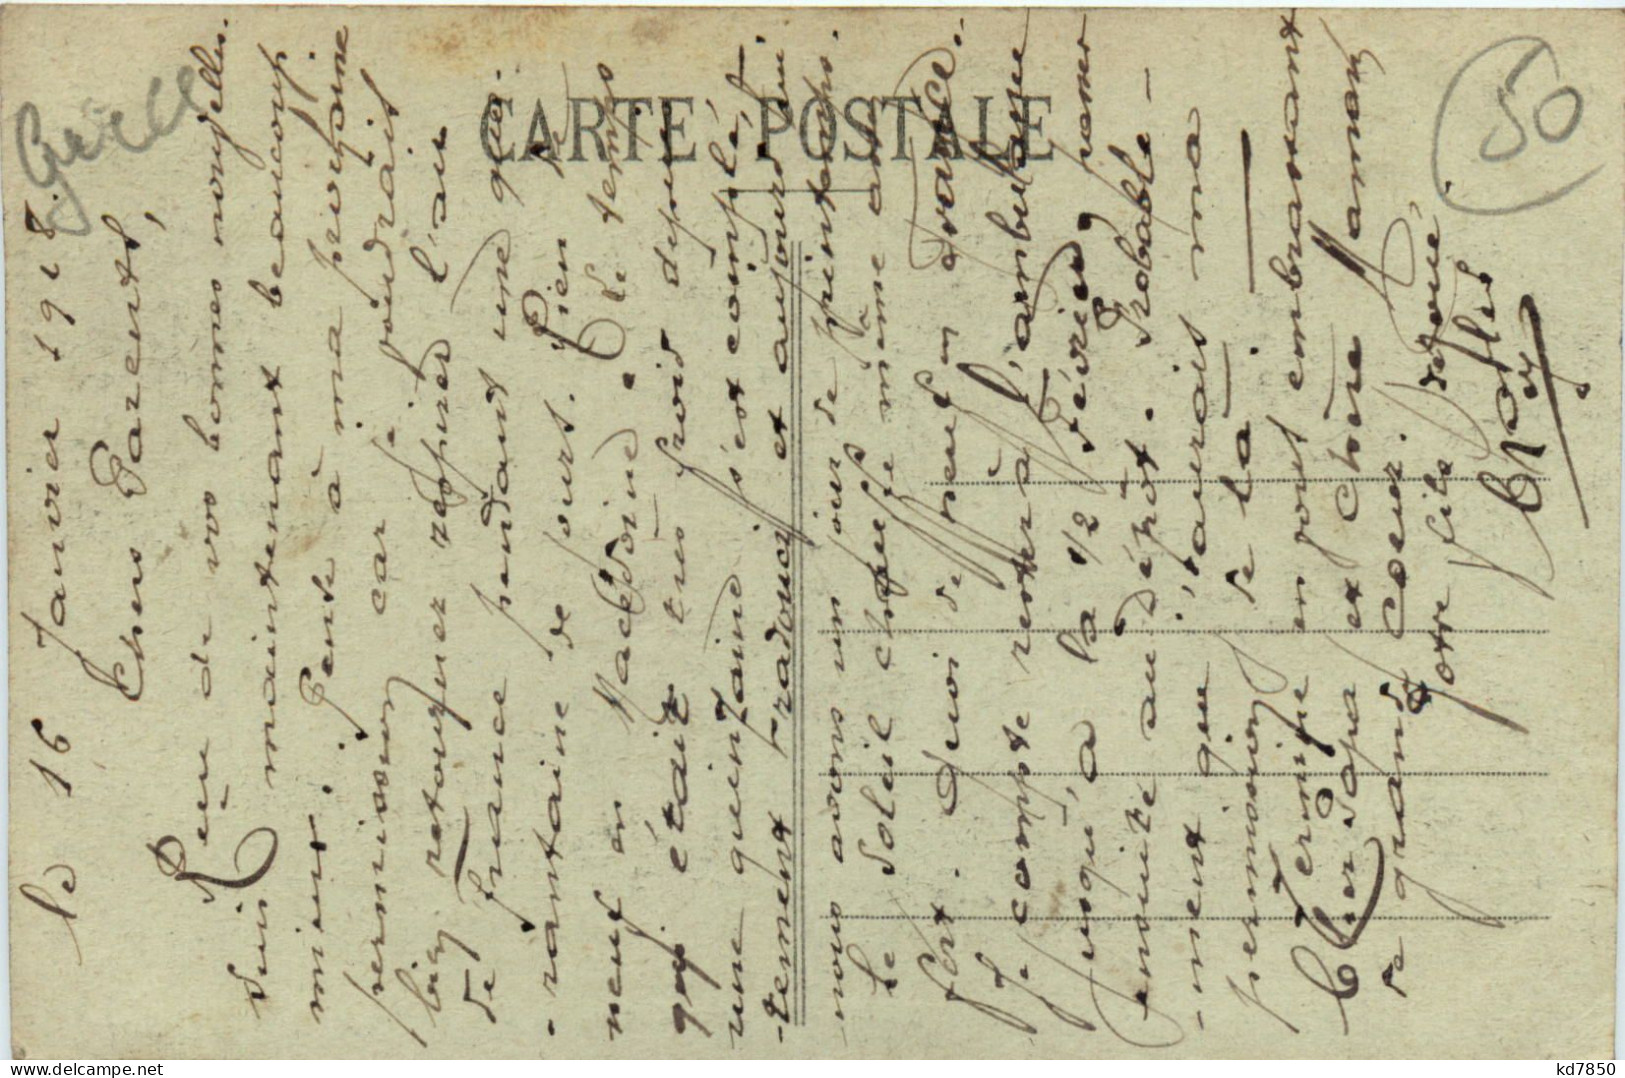 Grèce
50
CARTE POSTALE
le 16 Janvier 1918.
Chers Parents,
Reçu de vos bonnes nouvelles.
suis maintenant beaucoup
mieux. Pense à ma prochaine
permission car je voudrais
bien retourner respirer l'air
de France pendant une qua-
-rantaine de jours. Rien de
neuf en Macédoine. Le temps
qui était très froid depuis
une quinzaine s'est complè-
-tement radouci et aujourd'hui
nous avons un jour de printemps.
Le soleil chauffe même assez
fort. Quoi de neuf en France.
Je compte rester à l'ambulance
jusqu'à la 1/2 février, pour
ensuite au dépôt. Probable-
-ment que j'aurais ma
permission de là.
Termine en vous embrassant
Cher Papa et Chère Maman
de grand Coeur.
Votre fils dévoué
kd7850